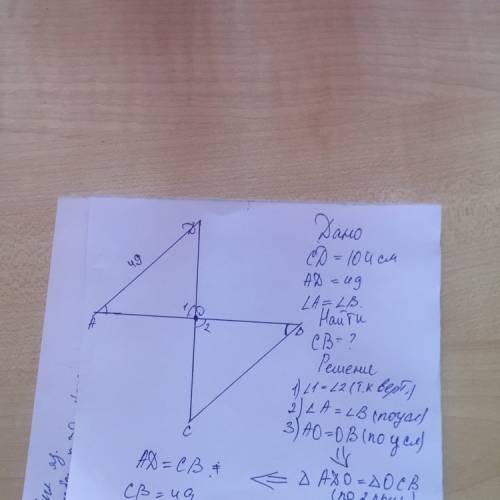 D
49
A
1
2
B
C
Дано
CD = 104 см
AD = 49
∠A = ∠B.
Найти
CB = ?
Решение
1) ∠1 = ∠2 (т.к верт.)
2) ∠A = ∠B (по усл)
3) AO = OB (по усл)
⇓
AD = CB.
⇐ △ ADO = △ OCB
CB = 49